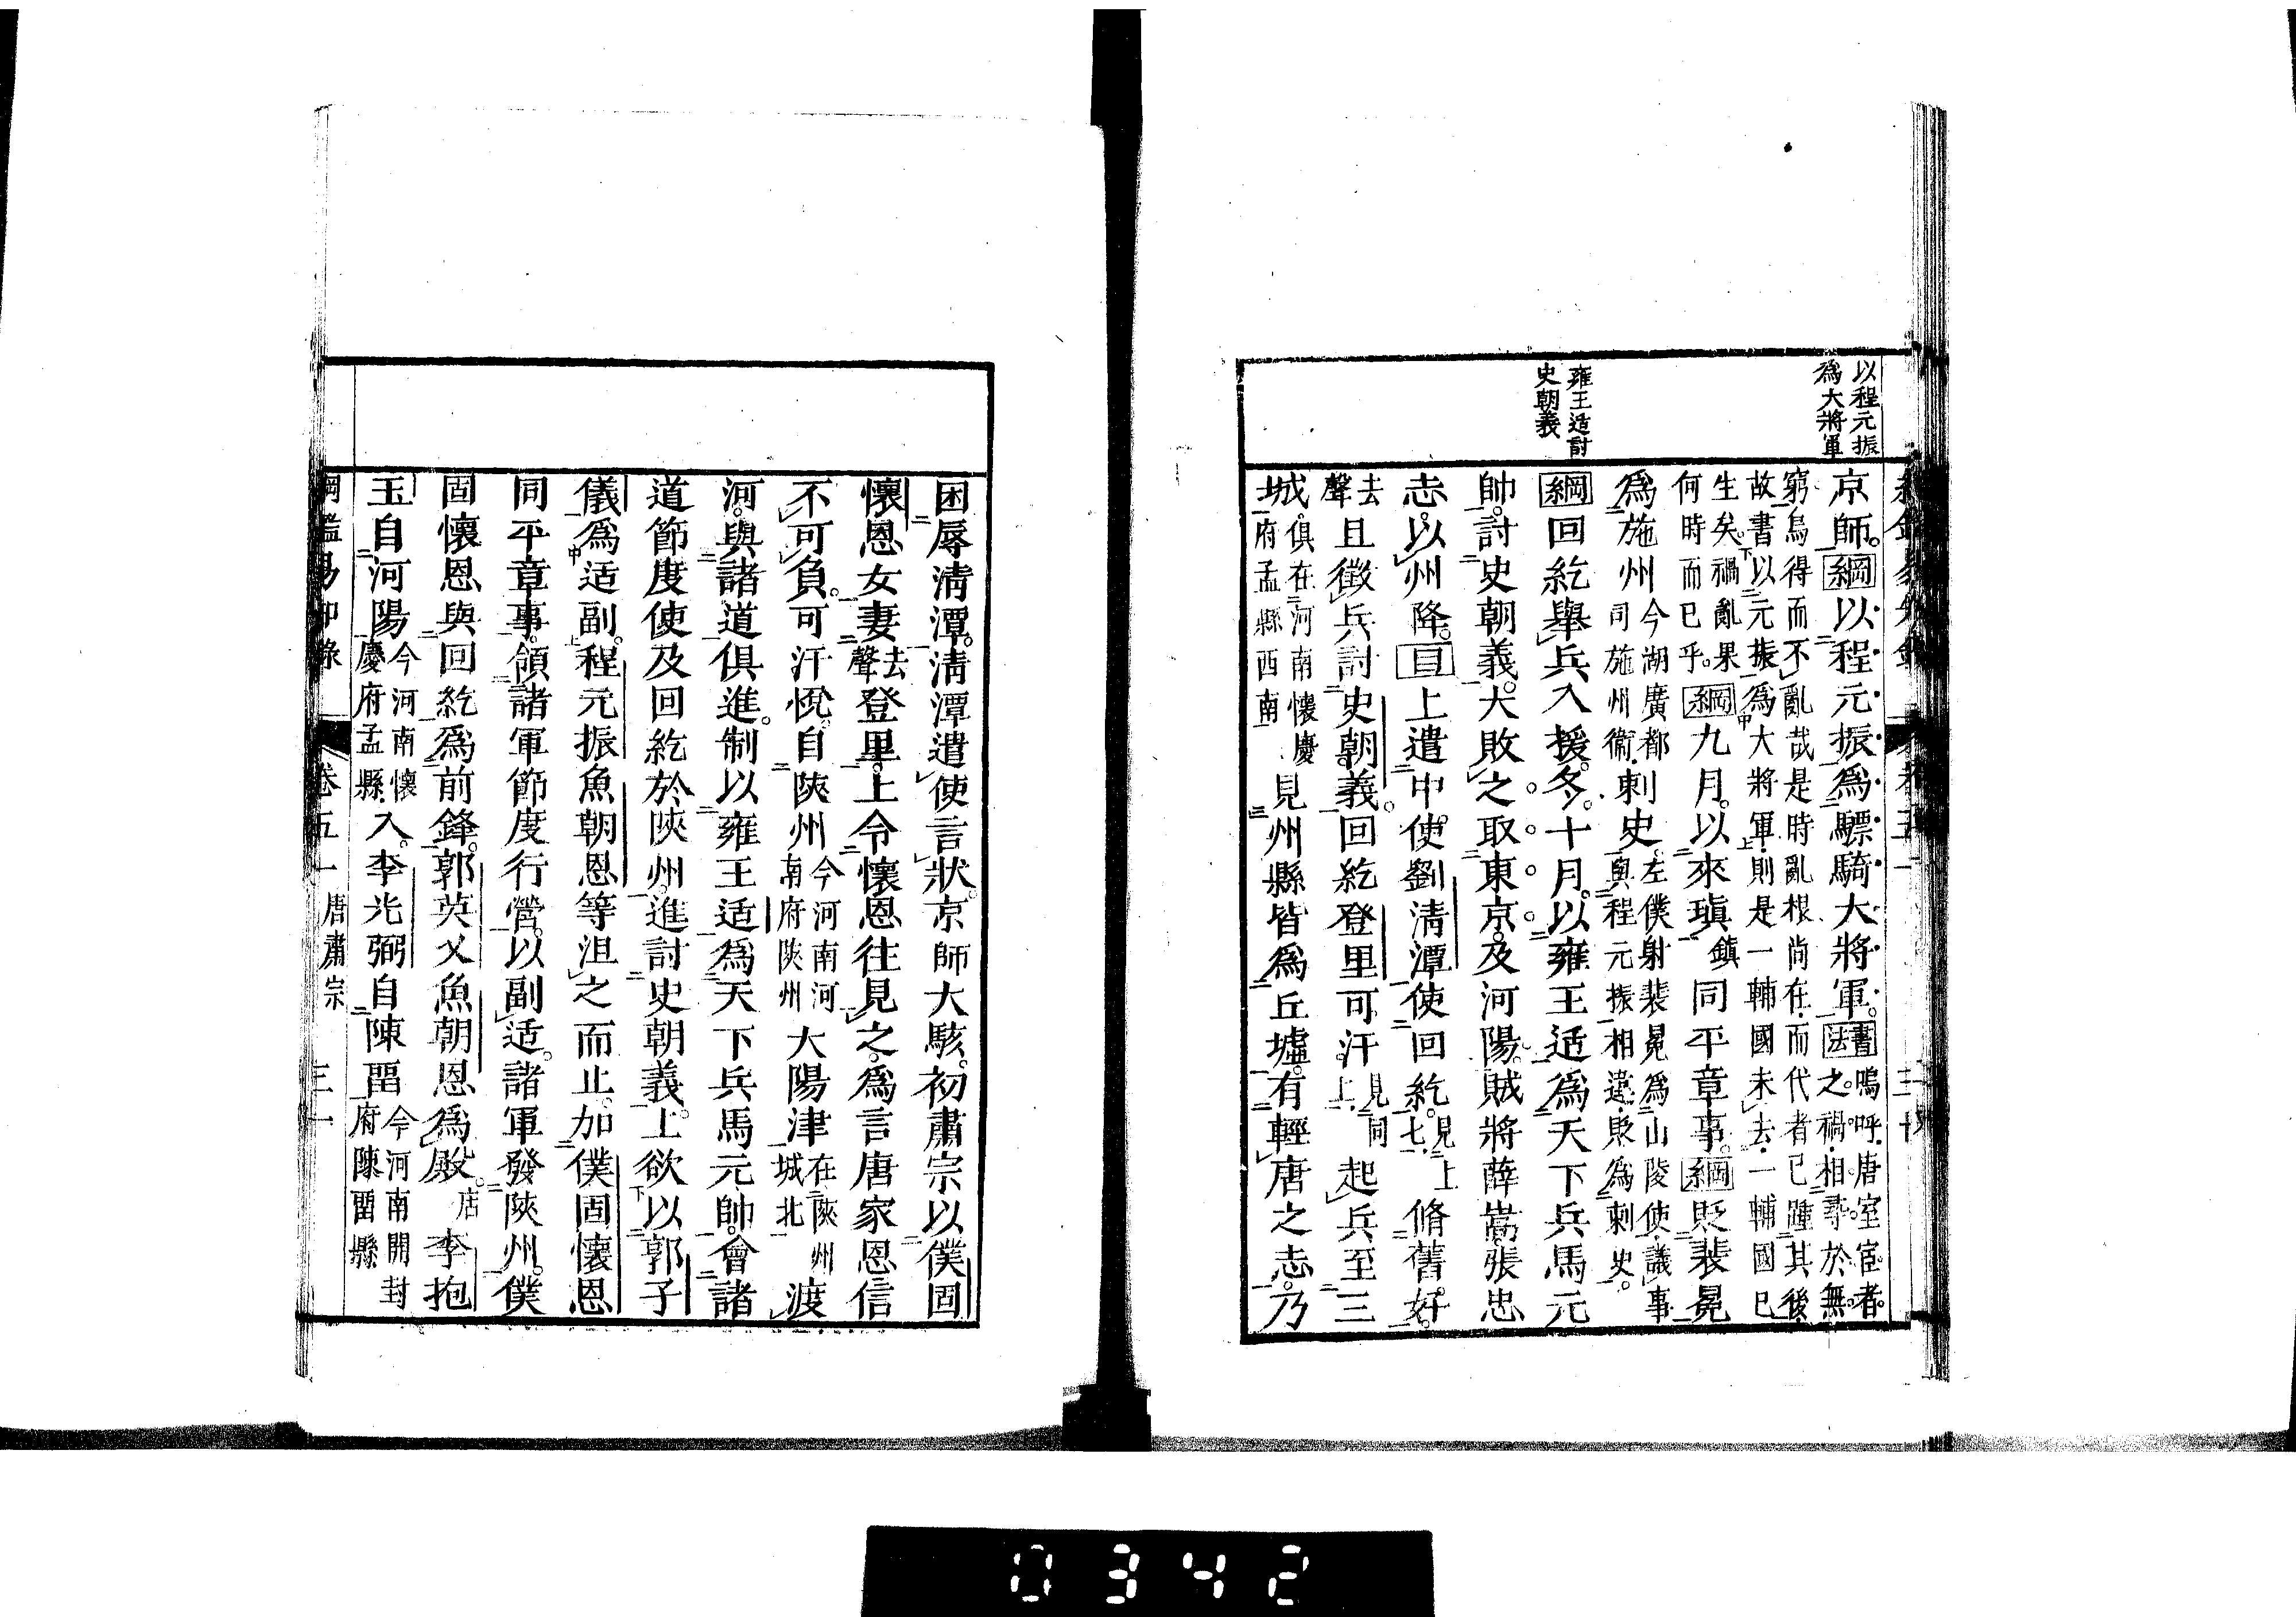 以程元振
爲大將軍
雍王适討
史朝義
京師。綱以程元振爲驃騎大將軍。書法嗚呼唐室宦者。之禍相尋於無
窮烏得而不亂哉是時亂根尚在而代者已踵其後
故書以元振爲大將軍則是一輔國未去一輔國已
生矣禍亂果
何時而已乎。綱九月。以來瑱鎮同平章事。綱貶裴冕
爲施州今湖廣都司施州衞刺史。左僕射裴冕爲山陵使議事與程元振相違貶爲刺史。
綱回紇舉兵入援。冬十月。以雍王适爲天下兵馬元
帥。討史朝義。大敗之。取東京。及河陽。賊將薛嵩張忠
志。以州降。目上遣中使劉淸潭使回紇。見上七。脩舊好。
去聲且徵兵討史朝義。回紇登里可汗。見同上。起兵至三
城。俱在河南懷慶府孟縣西南見州縣皆爲丘墟。有輕唐之志。乃
困辱淸潭。淸潭遣使言狀。京師大駭。初肅宗以僕固
懷恩女妻去聲登里。上令懷恩往見之。爲言唐家恩信
不可負。可汗悅。自陜州今河南河南府陜州大陽津在陜州城北渡
河。與諸道俱進。制以雍王适爲天下兵馬元帥。會諸
道節度使及回紇於陜州。進討史朝義。上欲以郭子
儀爲适副。程元振魚朝恩等沮之而止。加僕固懷恩
同平章事。領諸軍節度行營。以副适。諸軍發陜州。僕
固懷恩與回紇爲前鋒。郭英乂魚朝恩爲殿。店李抱
玉自河陽今河南懷慶府孟縣入。李光弼自陳畱今河南開封府陳畱縣
綱鑑易知錄 卷五一 唐肅宗 三一